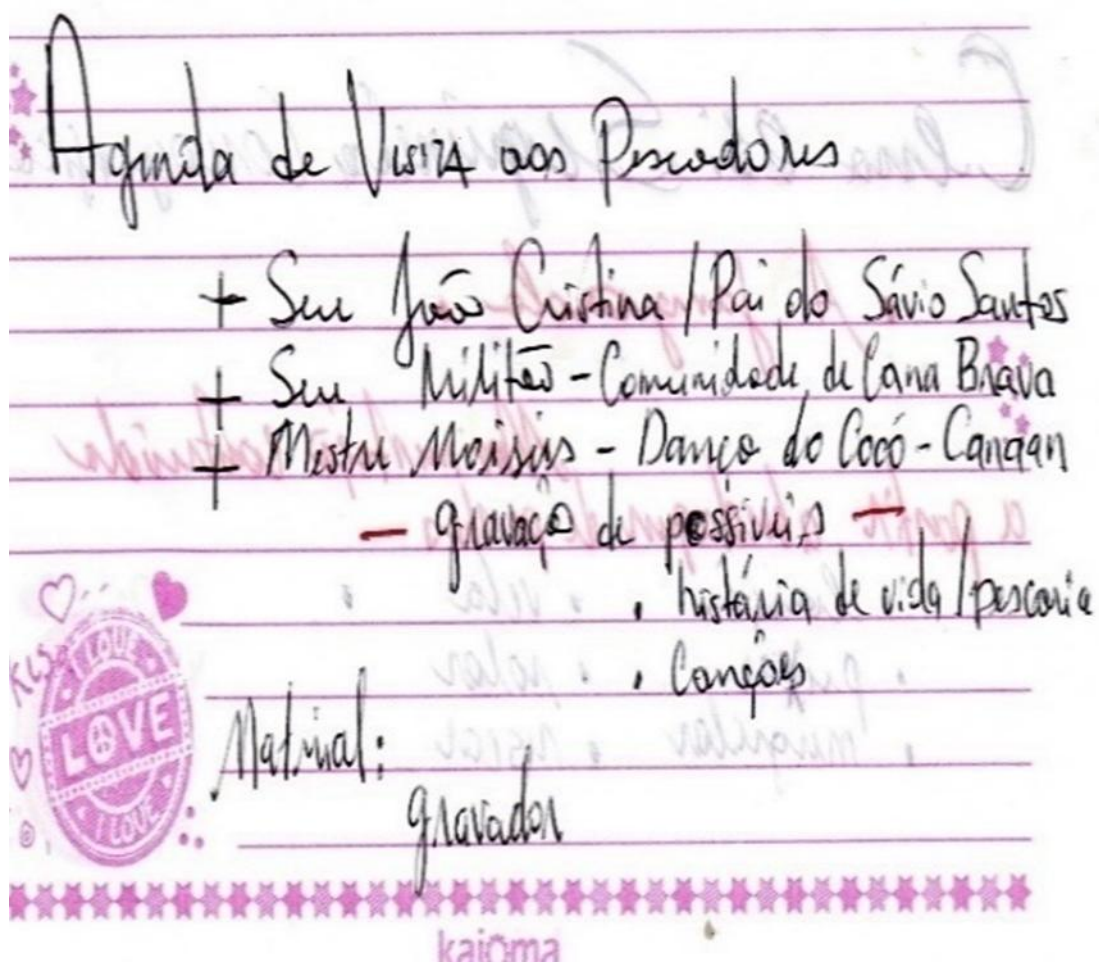 Agenda de Visita aos Pescadores
+ Seu João Cristina / Pai do Sávio Santos
+ Seu Militão - Comunidade de Cana Brava
+ Mestre Moisés - Dança do Cocó - Canaan
- gravação de possíveis -
. história de vida / pescaria
. Canções
Material:
gravador
I LOVE
LOVE
I LOVE
kaioma